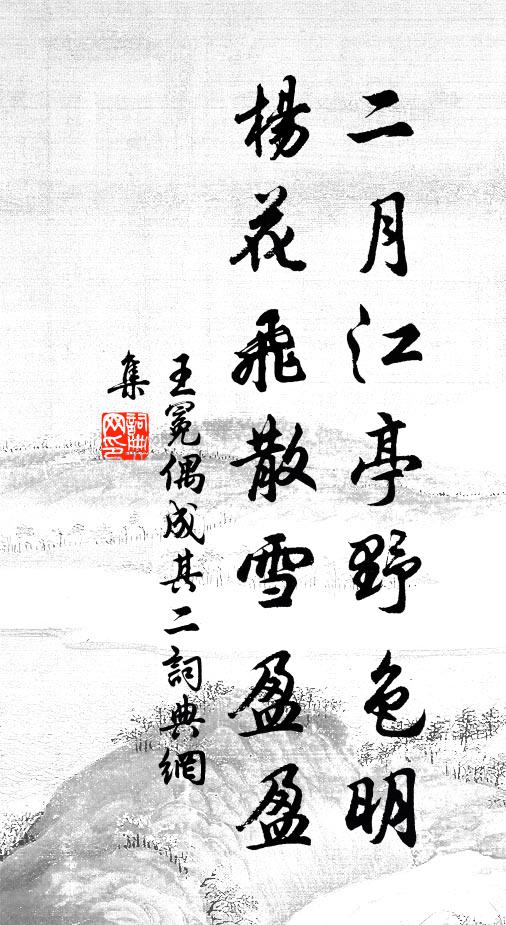 二月江亭野色明
楊花飛散雪盈盈
王冕偶成其二詞典網
集
詞典網印